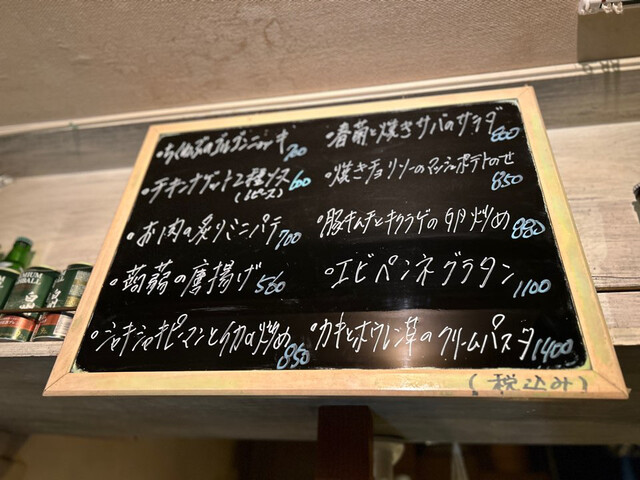 ・ちくわぶのゴルゴンニョッキ 700
・チキンナゲット2種ソース 600
(5ピース)
・お肉の炙りミニパテ 700
・蒟蒻の唐揚げ 560
・シャキシャキピーマンとイカの炒め 850
・春菊と焼きサバのサラダ 800
・焼きチョリソーのマッシュポテトのせ 850
・豚キムチとキクラゲの卵炒め 880
・エビペンネグラタン 1100
・カキとホウレン草のクリームパスタ 1400
(税込み)